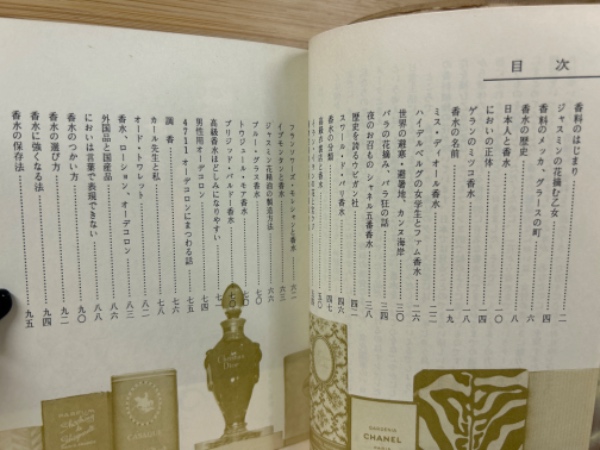 目次
香料のはじまり
ジャスミンの花摘む乙女……二
香料のメッカ、グラースの町……四
香水の歴史……六
日本人と香水……八
においの正体……一四
ゲランのミツコ香水……一〇
香水の名前……一九
ミス・ディオール香水……二二
ハイデルベルグの女学生とファム香水……二六
世界の避寒、避暑地、カンヌ海岸……三〇
バラの花摘み、バラ狂の話……三四
夜のお召もの シャネル五番香水……三八
歴史を誇るウビガン社……四二
スワール・ド・パリ香水……四六
香水の分類……四七
高級香水店と香水……五〇
フランソワーズ・モレシャンと香水……六二
イブ・モンタンと香水……六三
ジャスミン花精油の製造方法……六六
ブルー・グラス香水……七〇
トウジュール・モア香水
ブリジッド・バルドー香水……七〇
高級香水ほどしみになりやすい……七一
男性用オーデコロン……七四
4711 オーデコロンにまつわる話……七五
調香……七六
カール先生と私……七八
オード・トワレット……八二
香水、ローション、オーデコロン……八三
外国品と国産品……八六
においは言葉で表現できない……八八
香水のつかい方……九〇
香水の選び方……九二
香水に強くなる法……九四
香水の保存法……九五
Christian
Dior
GARDENIA
CHANEL
PARIS